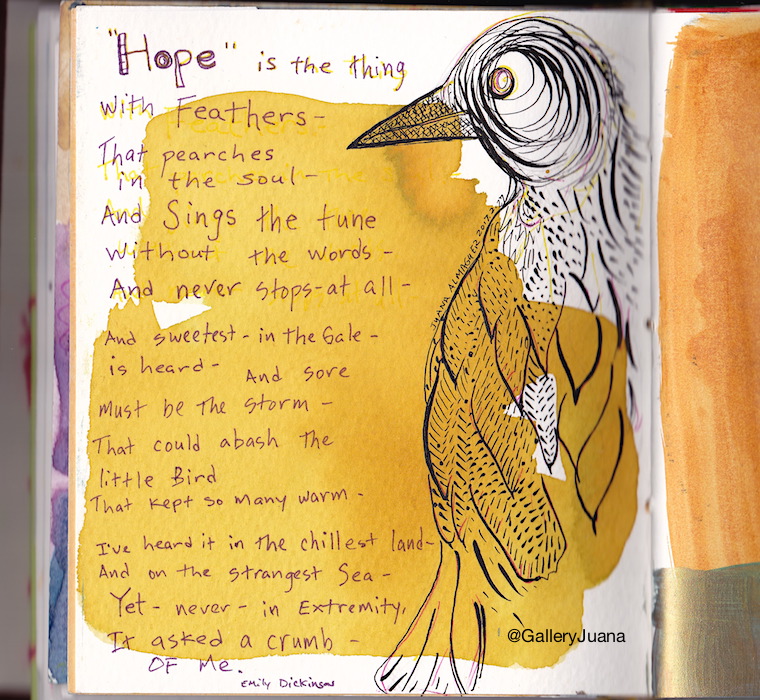 "Hope" is the thing
with Feathers -
That pearches
in the soul -
And Sings the tune
without the words -
And never stops - at all -
And sweetest - in the Gale -
is heard - And sore
must be the storm -
That could abash the
little Bird
That kept so many warm -
I've heard it in the chillest land -
And on the strangest Sea -
Yet - never - in Extremity,
It asked a crumb -
OF Me.
Emily Dickinson
JUANA ALMAGUER 2017
@GalleryJuana